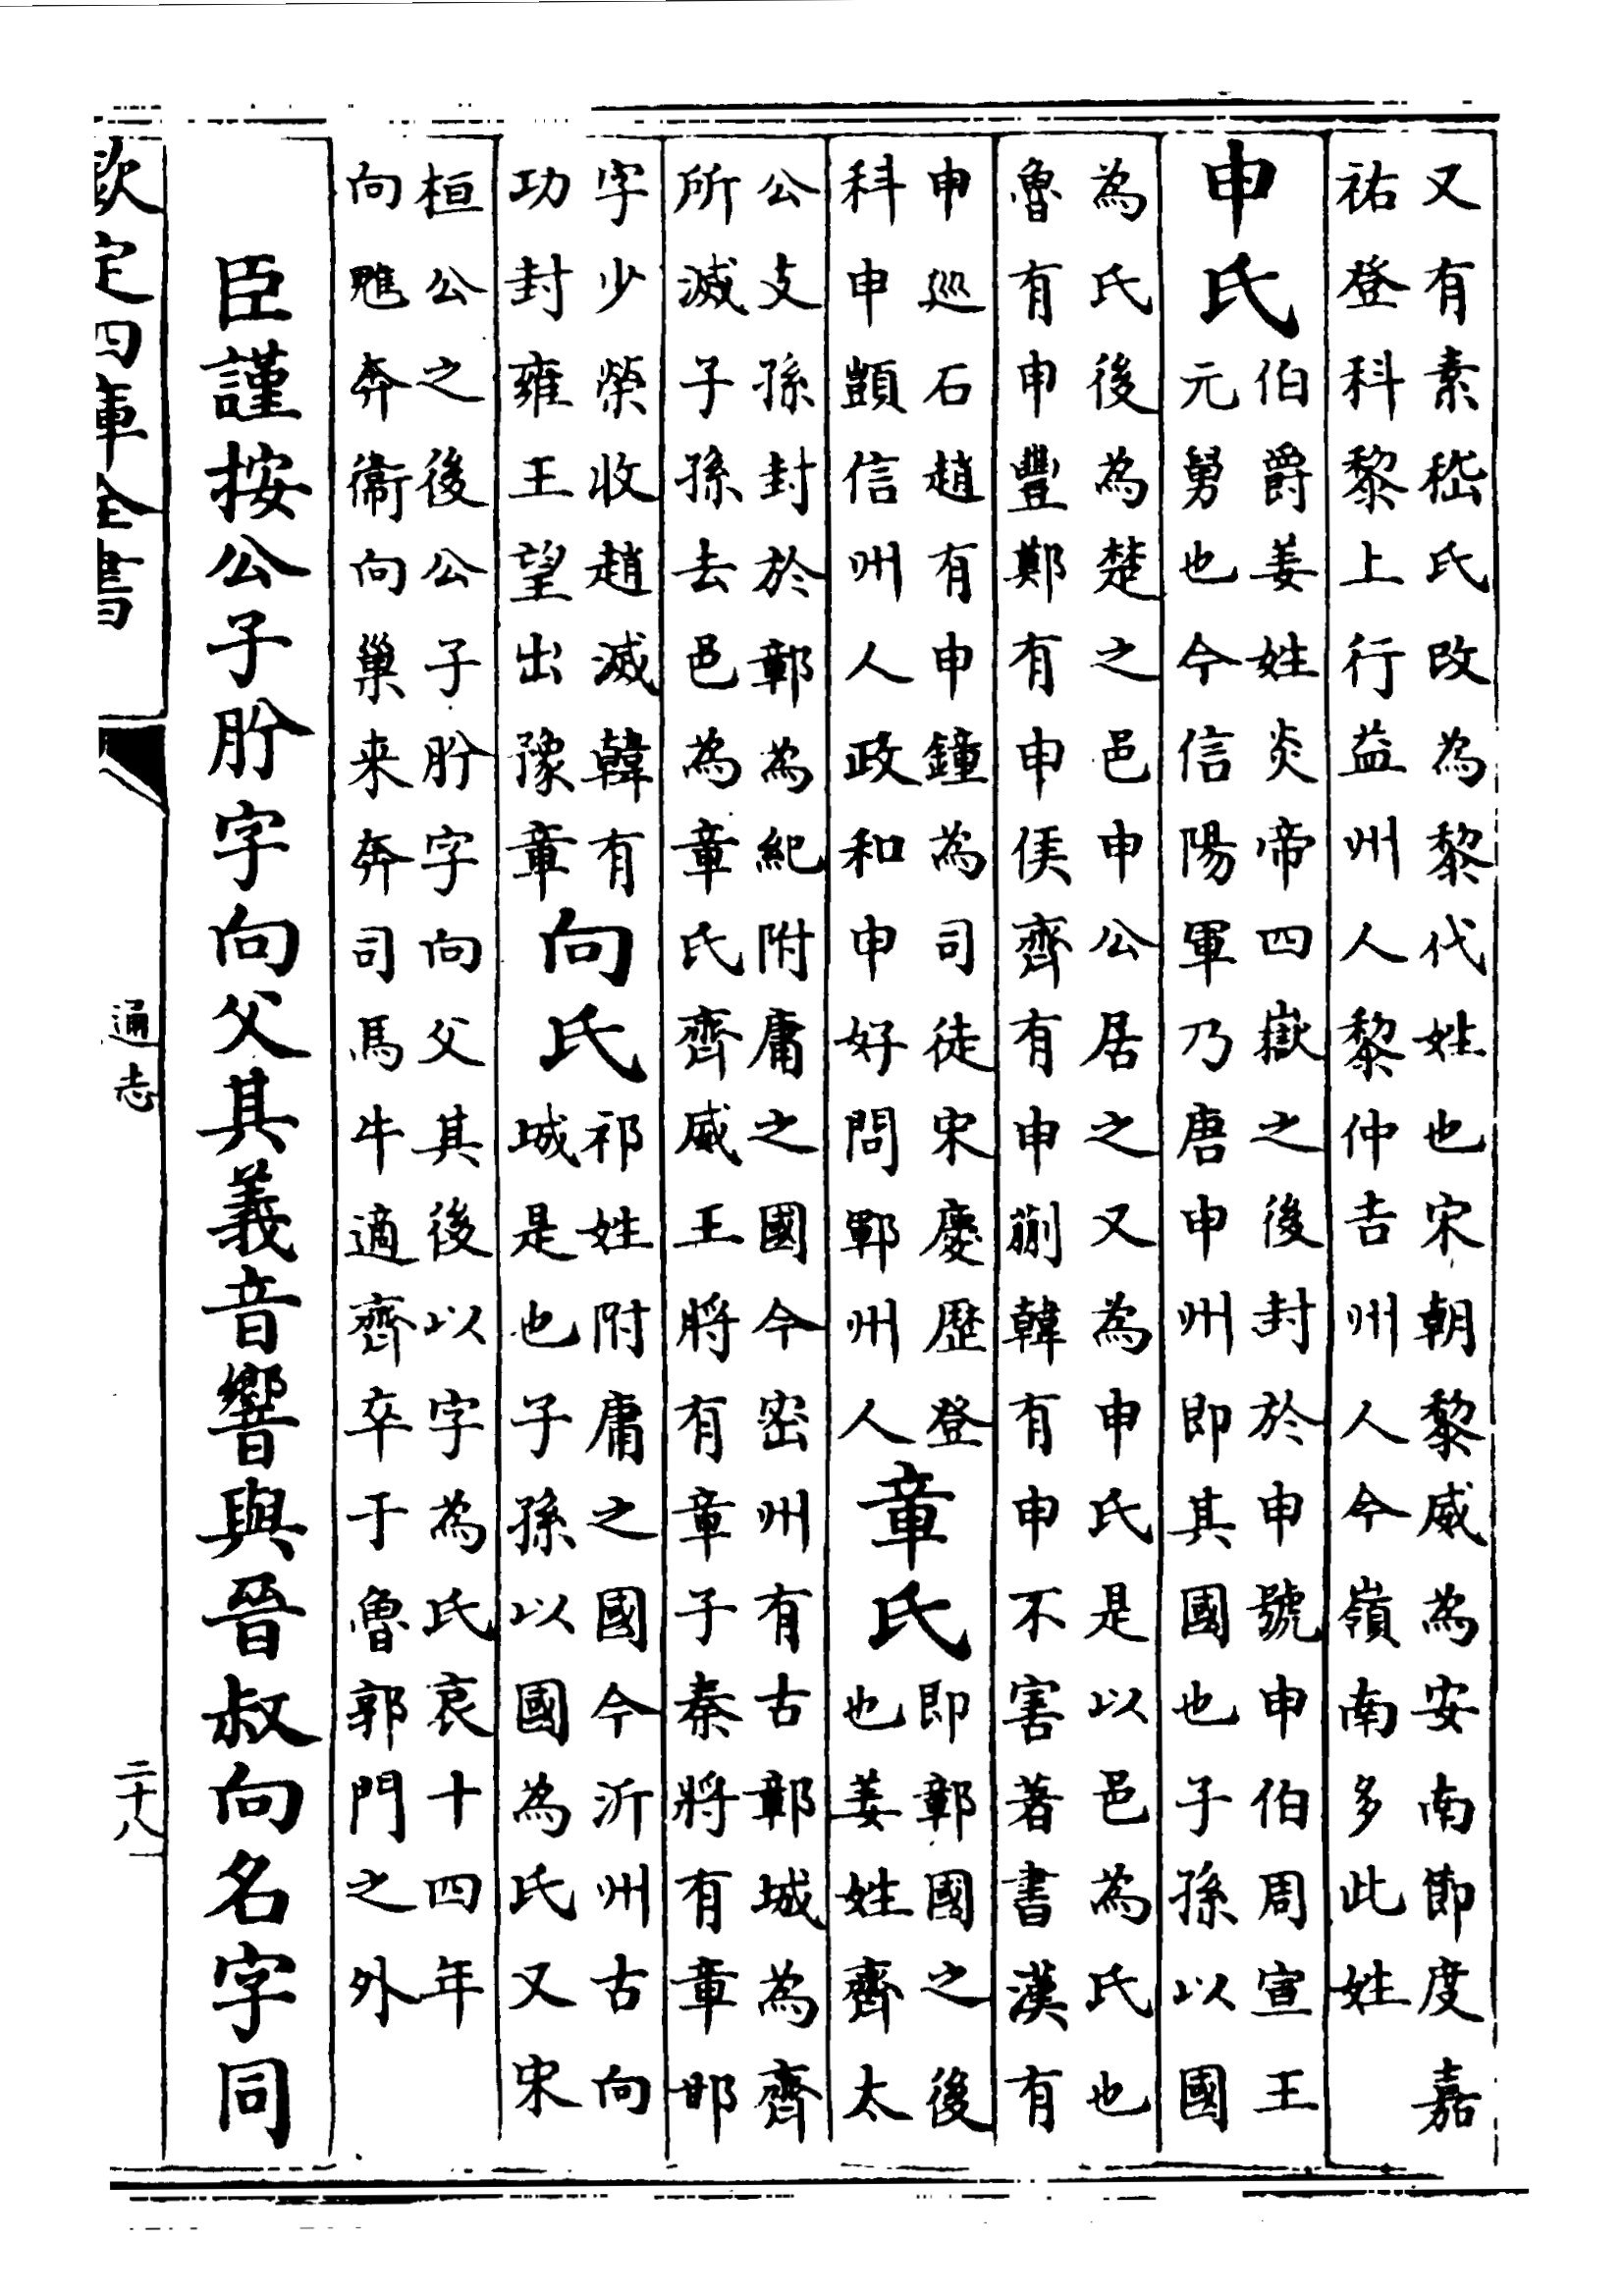 又有素嵇氏改為黎代姓也宋朝黎威為安南節度嘉
祐登科黎上行益州人黎仲吉州人今嶺南多此姓
申氏
伯爵姜姓炎帝四嶽之後封於申號申伯周宣王
元舅也今信陽軍乃唐申州即其國也子孫以國
為氏後為楚之邑申公居之又為申氏是以邑為氏也
魯有申豐鄭有申侯齊有申蒯韓有申不害著書漢有
申巡石趙有申鐘為司徒宋慶歴登
科申顗信州人政和申好問鄆州人
章氏
即鄣國之後
也姜姓齊太
公支孫封於鄣為紀附庸之國今密州有古鄣城為齊
所滅子孫去邑為章氏齊威王將有章子秦將有章邯
字少榮收趙滅韓有
功封雍王望出豫章
向氏
祁姓附庸之國今沂州古向
城是也子孫以國為氏又宋
桓公之後公子肸字向父其後以字為氏哀十四年
向魋奔衞向巢来奔司馬牛適齊卒于魯郭門之外
臣謹按公子肸字向父其義音響與晉叔向名字同
欽定四庫全書
通志
二十八